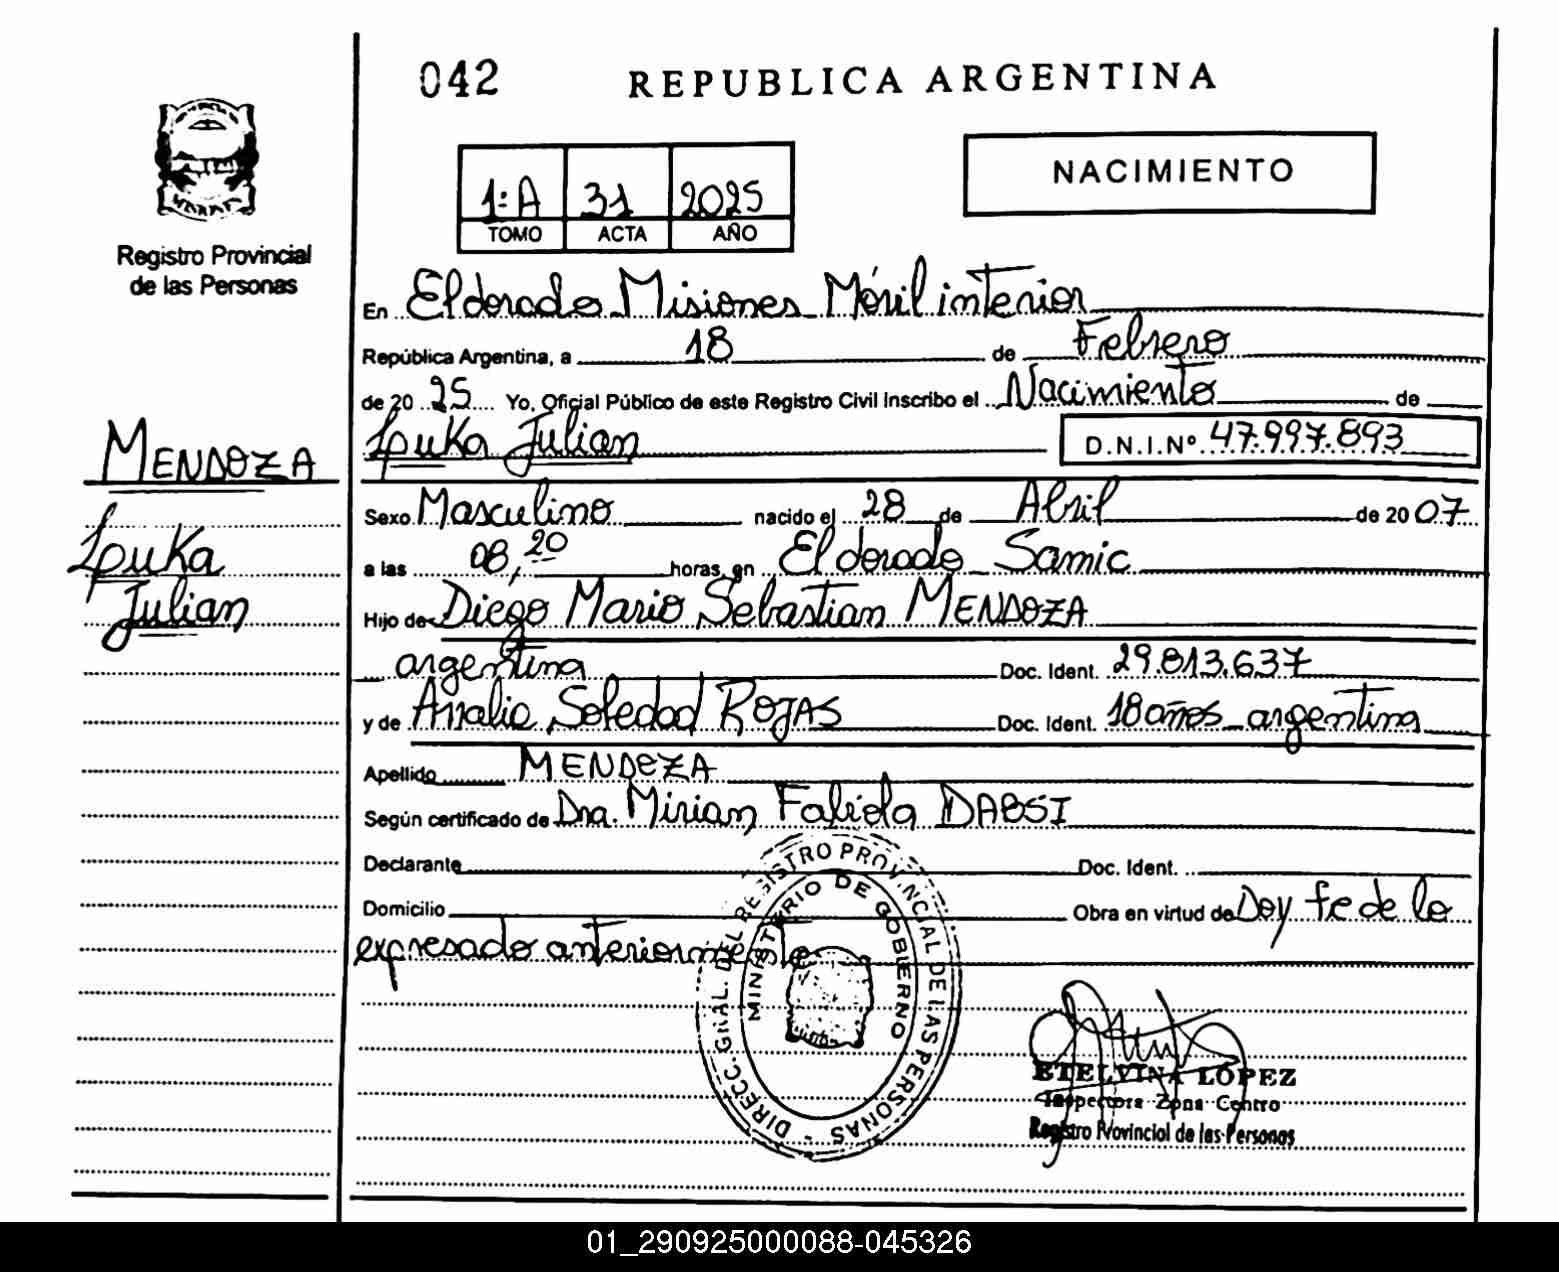 042
REPUBLICA ARGENTINA
1:A 31 2025
TOMO ACTA AÑO
NACIMIENTO
Registro Provincial
de las Personas
En Eldorado Misiones Móvil interior
República Argentina, a 18 de Febrero
de 2025 Yo, Oficial Público de este Registro Civil Inscribo el Nacimiento de
MENDOZA
Louka
Julian
Louka Julian D.N.I.Nº 47.997.893
Sexo Masculino nacido el 28 de Abril de 2007
a las 08,20 horas, en Eldorado Samic
Hijo de Diego Mario Sebastian MENDOZA
argentina Doc. Ident. 29.813.637
y de Analia Soledad ROJAS Doc. Ident. 18 años argentina
Apellido MENDOZA
Según certificado de Dra. Mirian Fabiola
Declarante Doc. Ident.
Domicilio Obra en virtud de Doy fe de lo
expresado anteriormente
DIRECC. GRAL. DEL REGISTRO PROVINCIAL DE LAS PERSONAS
MINISTERIO DE GOBIERNO
ETELVINA LOPEZ
Inspectora Zona Centro
Registro Provincial de las Personas
01_290925000088-045326